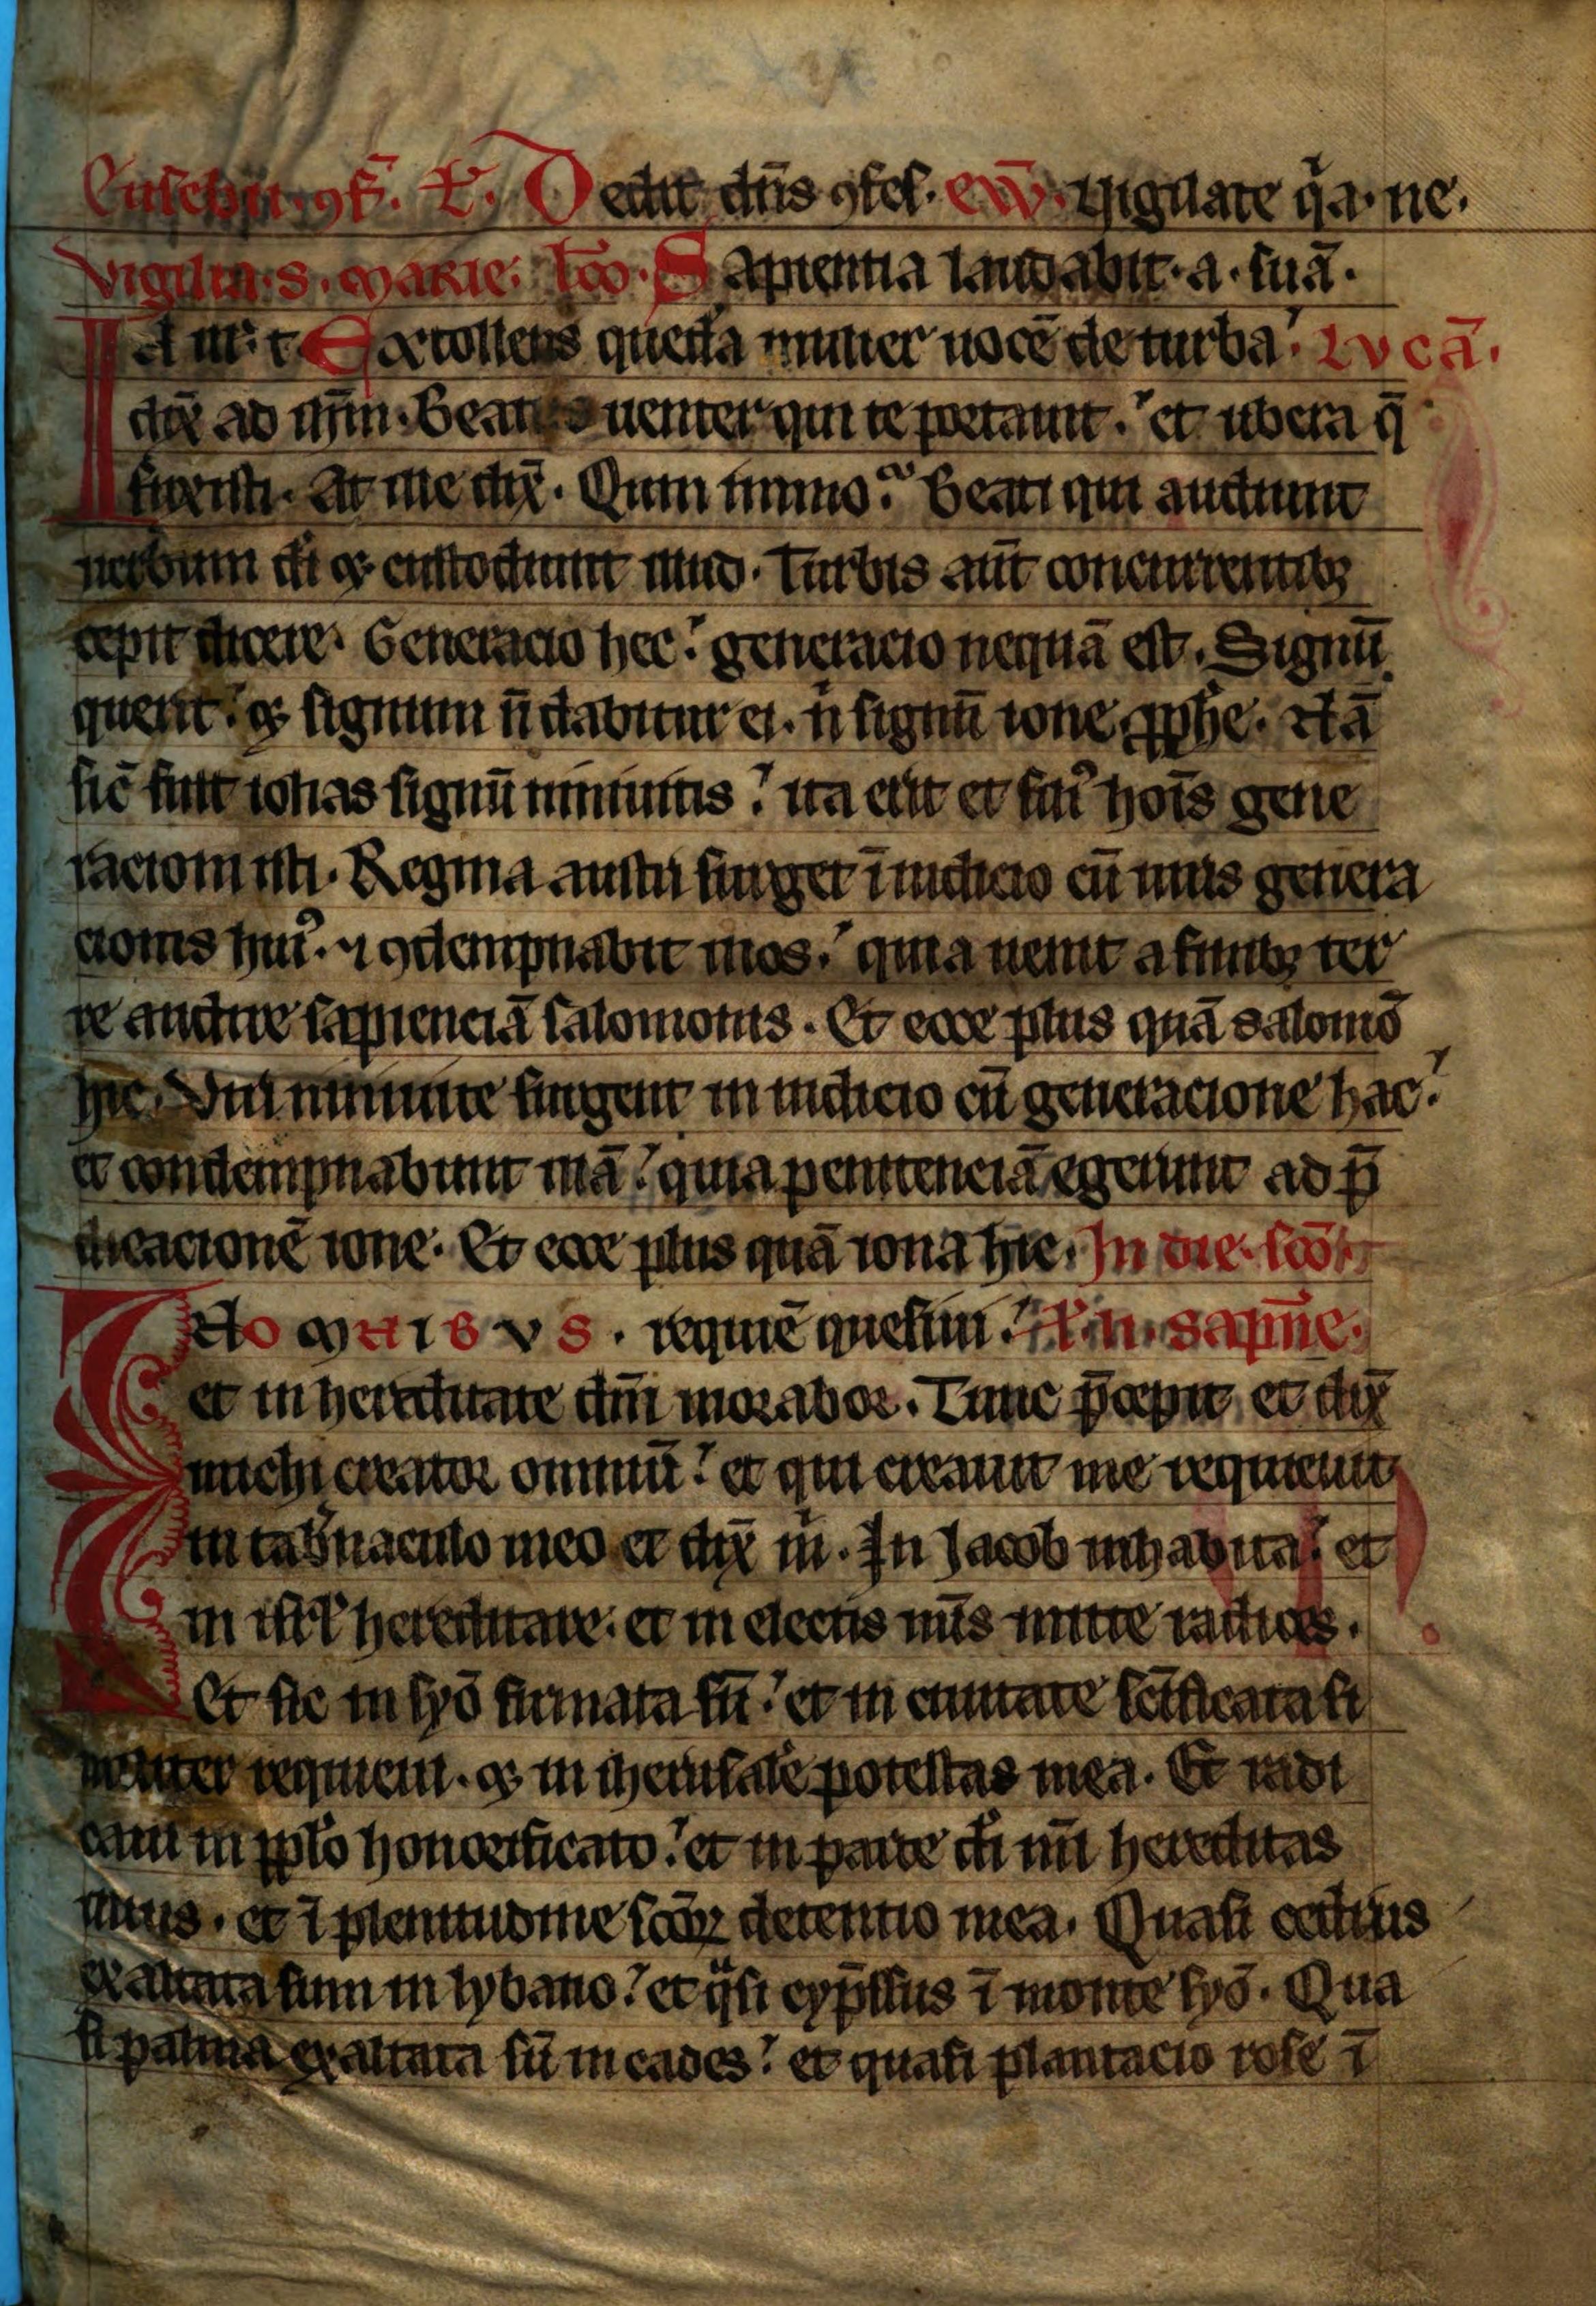 Eusebii. ꝯf̄. Ł. Dedit dn̄s ꝯfes. eꝟw̄. Vigilate qͥa. ne.
Vigilia. S. Marie. lc̄o. Sapientia laudabit. a. suā.
In iƚƚ. t. Extollens quedā mulier uocē de turba. Lvcā.
dix̄ ad ihm̄. Beatus uenter qui te portauit. et ubera q̄
suxisti. At ille dix̄. Quin immo. Beati qui audiunt
uerbum di̅ ⁊ custodiunt illud. Turbis aūt concurrentibꝫ
cepit dicere. Generacio hec. generacio nequā est. Signū
querit. ⁊ signum n̄ dabitur ei. nͥ signū ione ꝓphe. Nā
sic̄ fuit ionas signū niniuitis. ita erit et filiꝰ hoı̄s gene
racioni isti. Regina austri surget ī iudicio cū uiris genera
cionis huiꝰ. ⁊ ꝯdempnabit illos. quia uenit a finibꝫ ter
re audire sapienciā salomonis. Et ecce plus quā salomō
hic. Viri niniuite surgent in iudicio cū generacione hac.
et condempnabunt illā. quia penitenciā egerunt ad p̄
dicacionē ione. Et ecce plus quā iona hic. In die. sc̄o.
In omnibvs. requiē quesiui. Ł. li. sapīıe.
et in hereditate dn̄i morabor. Tunc p̄cepit et dix̄
michi creator omniū. et qui creauit me requieuit
in tab̄naculo meo et dix̄ mͥ. In Jacob inhabita. et
in isrƚ hereditare. et in electis m̄is mitte radices.
Et sic in syō firmata sū. et in ciuitate sc̄ificata si
militer requieui. ⁊ in iherusalē potestas mea. Et radi
caui in ppƚo honorificato. et in parte di̅ m̄i hereditas
illius. et ī plenitudine sc̄oꝝ detentio mea. Quasi cedrus
exaltata sum in lybano. et qͣsi cyp̄ssus ī monte syō. Qua
si palma exaltata sū in cades. et quasi plantacio rose ī